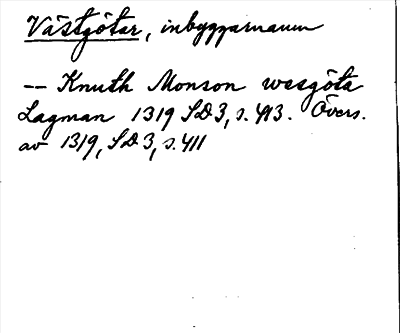 Västgötar, inbyggarnamn
-- Knuth Monson wesgöta
Lagman 1319 SD3, s. 413. Övers.
av 1319, SD 3, s. 411